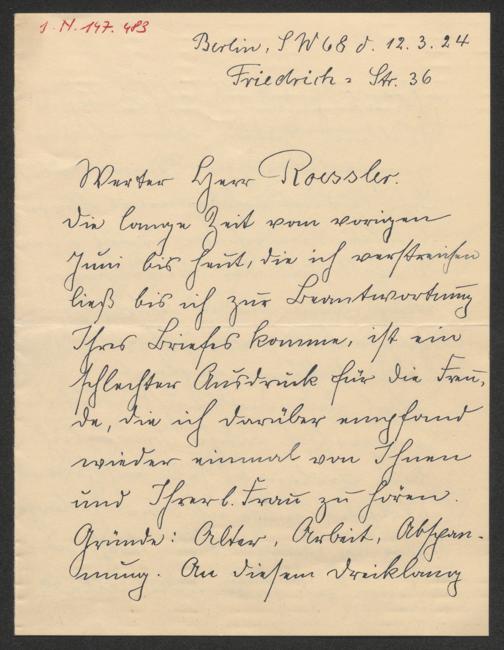 J.N. 147.483
Berlin, SW 68 d. 12.3.24
Friedrich= Str. 36
Werter Herr Roessler.
Die lange Zeit vom vorigen
Juni bis heut, die ich verstreichen
ließ bis ich zur Beantwortung
Ihres Briefes komme, ist ein
schlechter Ausdruck für die Freu-
de, die ich darüber empfand
wieder einmal von Ihnen
und Ihrer l. Frau zu hören.
Gründe: Alter, Arbeit, Abspan-
nung. An diesem Dreiklang